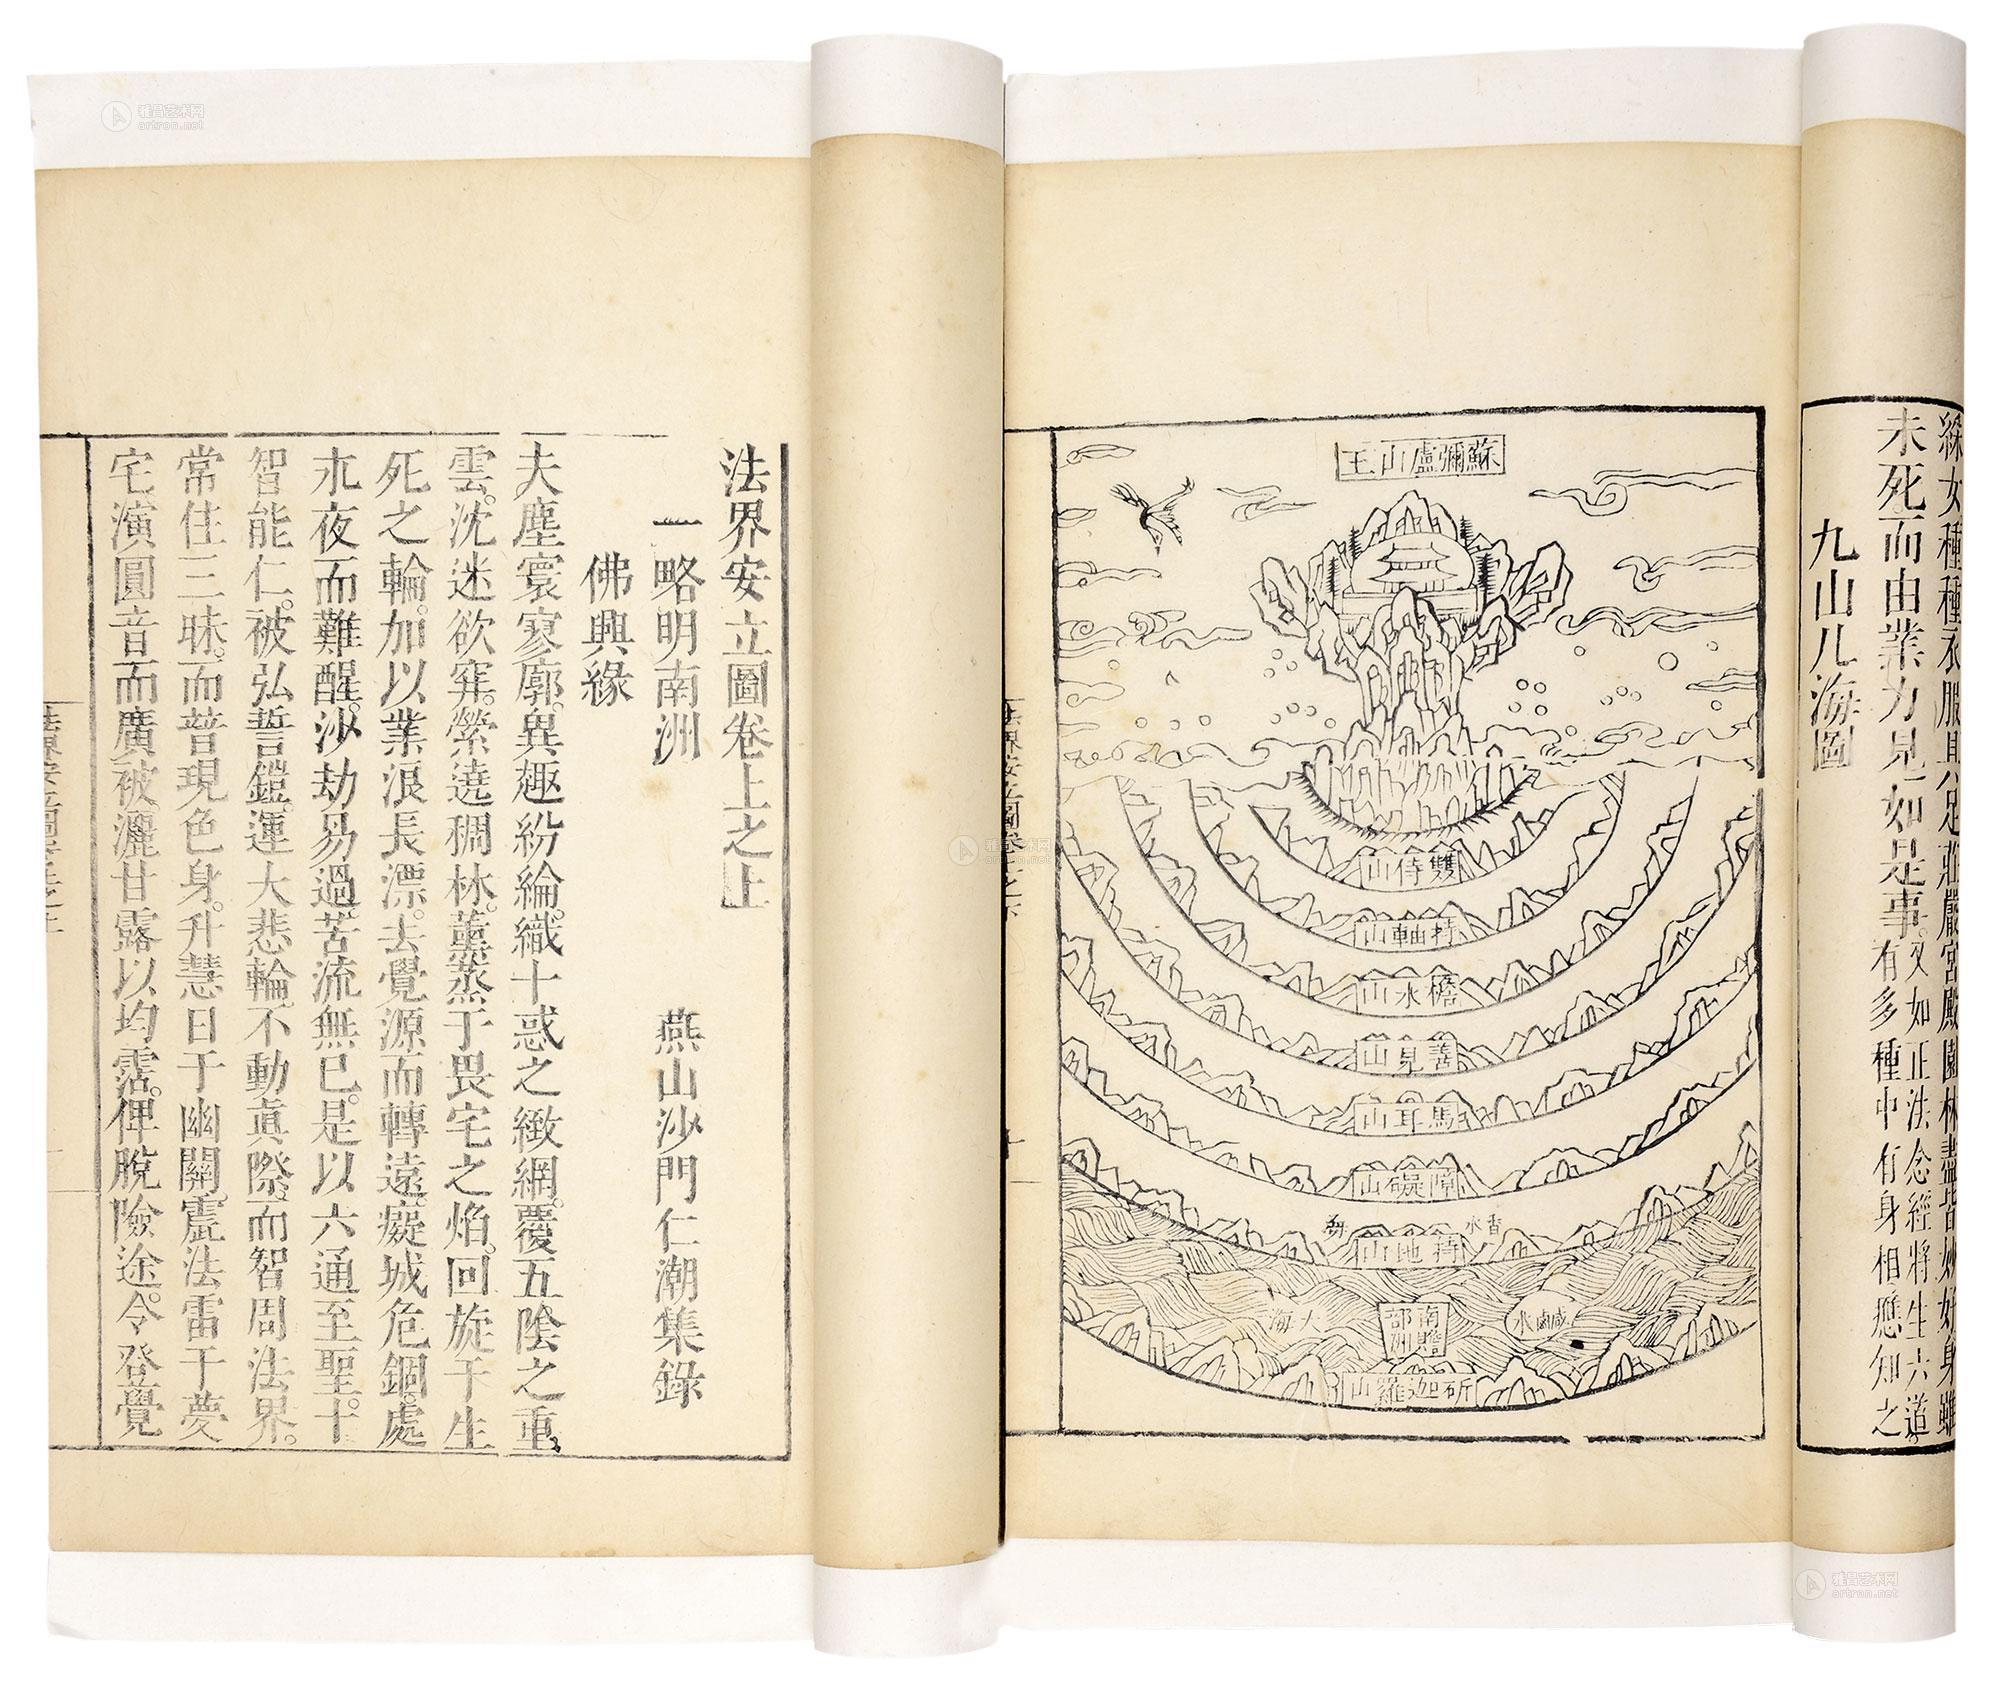 法界安立圖卷上之上
一略明南洲
燕山沙門仁潮集錄
佛興緣
夫塵寰寥廓。異趣紛綸。織十惑之緻網。覆五陰之重
雲。沈迷欲穽。縈遶稠林。薰蒸于畏宅之焰。回旋千生
死之輪。加以業浪長漂。去覺源而轉遠。癡城危錮。處
永夜而難醒。沙劫易過。苦流無已。是以六通至聖。十
智能仁。被弘誓鎧。運大悲輪。不動眞際。而智周法界。
常住三昧。而普現色身。升慧日于幽關。震法雷于夢
宅。演圓音而廣被。灑甘露以均霑。俾脫險途。令登覺
法界安立圖卷上之上
一
婇女種種衣服具足莊嚴宮殿園林盡皆妙好身雖
未死而由業力見如是事。又如正法念經將生六道。
有多種中有身相應知之
九山八海圖
蘇彌盧山王
雙持山
持軸山
檐木山
善見山
馬耳山
障礙山
香水
海
持地山
大海
南贍部洲
鹹鹵水
斫迦羅山
法界安立圖卷上之下
十一
雅昌艺术网
artron.net
雅昌艺术网
artron.net
雅昌艺术网
artron.net